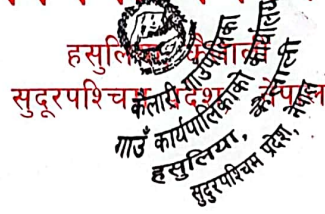 हसुलिया, कैलाली
सुदूरपश्चिम प्रदेश, नेपाल
कैलारी गाउँपालिका
गाउँ कार्यपालिकाको कार्यालय
हसुलिया, कैलाली
सुदूरपश्चिम प्रदेश, नेपाल